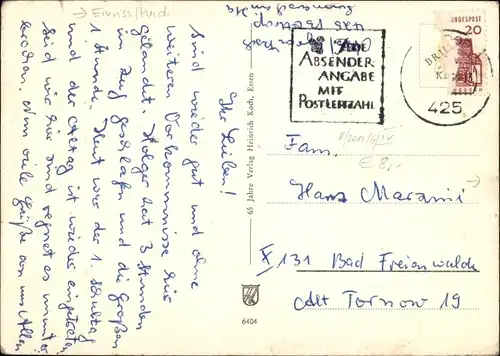 → Einriss/Knick
Ihr Lieben!
Sind wieder gut und ohne
weiteren Vorkommnisse hier
gelandet. Holger hat 3 Stunden
im Zug geschlafen und die großen
1 Stunde. Heut war der 1. Schultag
und der Alltag ist wieder eingetreten
wir hier sind regnet es immer
Nun viele Grüße von uns Allen
65 Jahre Verlag Heinrich Koch, Essen
6404
ABSENDER-
ANGABE
MIT
POSTLEITZAHL
425
BUNDESPOST
20
€ 8,-
Fam.
Hans Marami
X 131 Bad Freienwalde
Alt Tornow 19